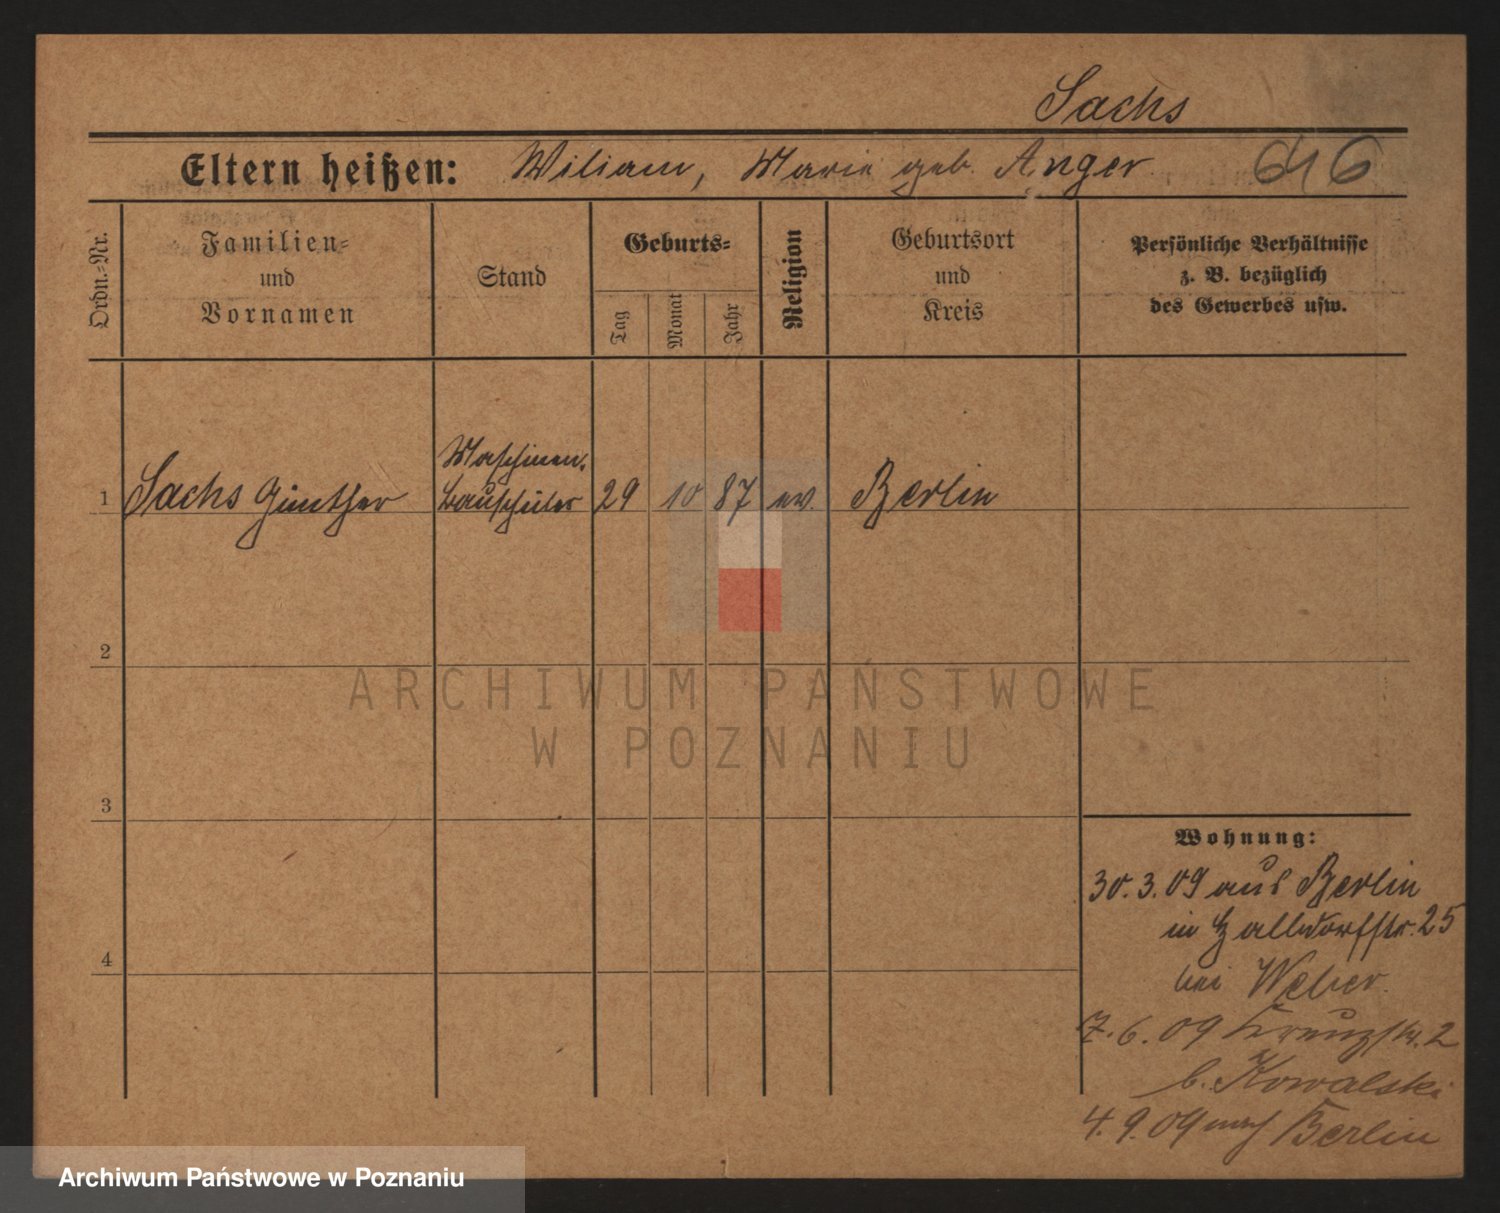 Sachs
Eltern heißen: Wiliam, Marie geb. Anger
646
Ordn.-Nr.
Familien-
und
Vornamen
Stand
Geburts-
Tag
Monat
Jahr
Religion
Geburtsort
und
Kreis
Persönliche Verhältnisse
z. B. bezüglich
des Gewerbes usw.
Maschinen-
1 Sachs Günther bauschüler 29 10 87 ev. Berlin
2
3
4
ARCHIWUM PAŃSTWOWE
W POZNANIU
Wohnung:
30.3.09 aus Berlin
in Halldorfstr. 25
bei Weber.
7.6.09 Kreuzstr. 2
b. Kowalski
4.9.09 nach Berlin
Archiwum Państwowe w Poznaniu